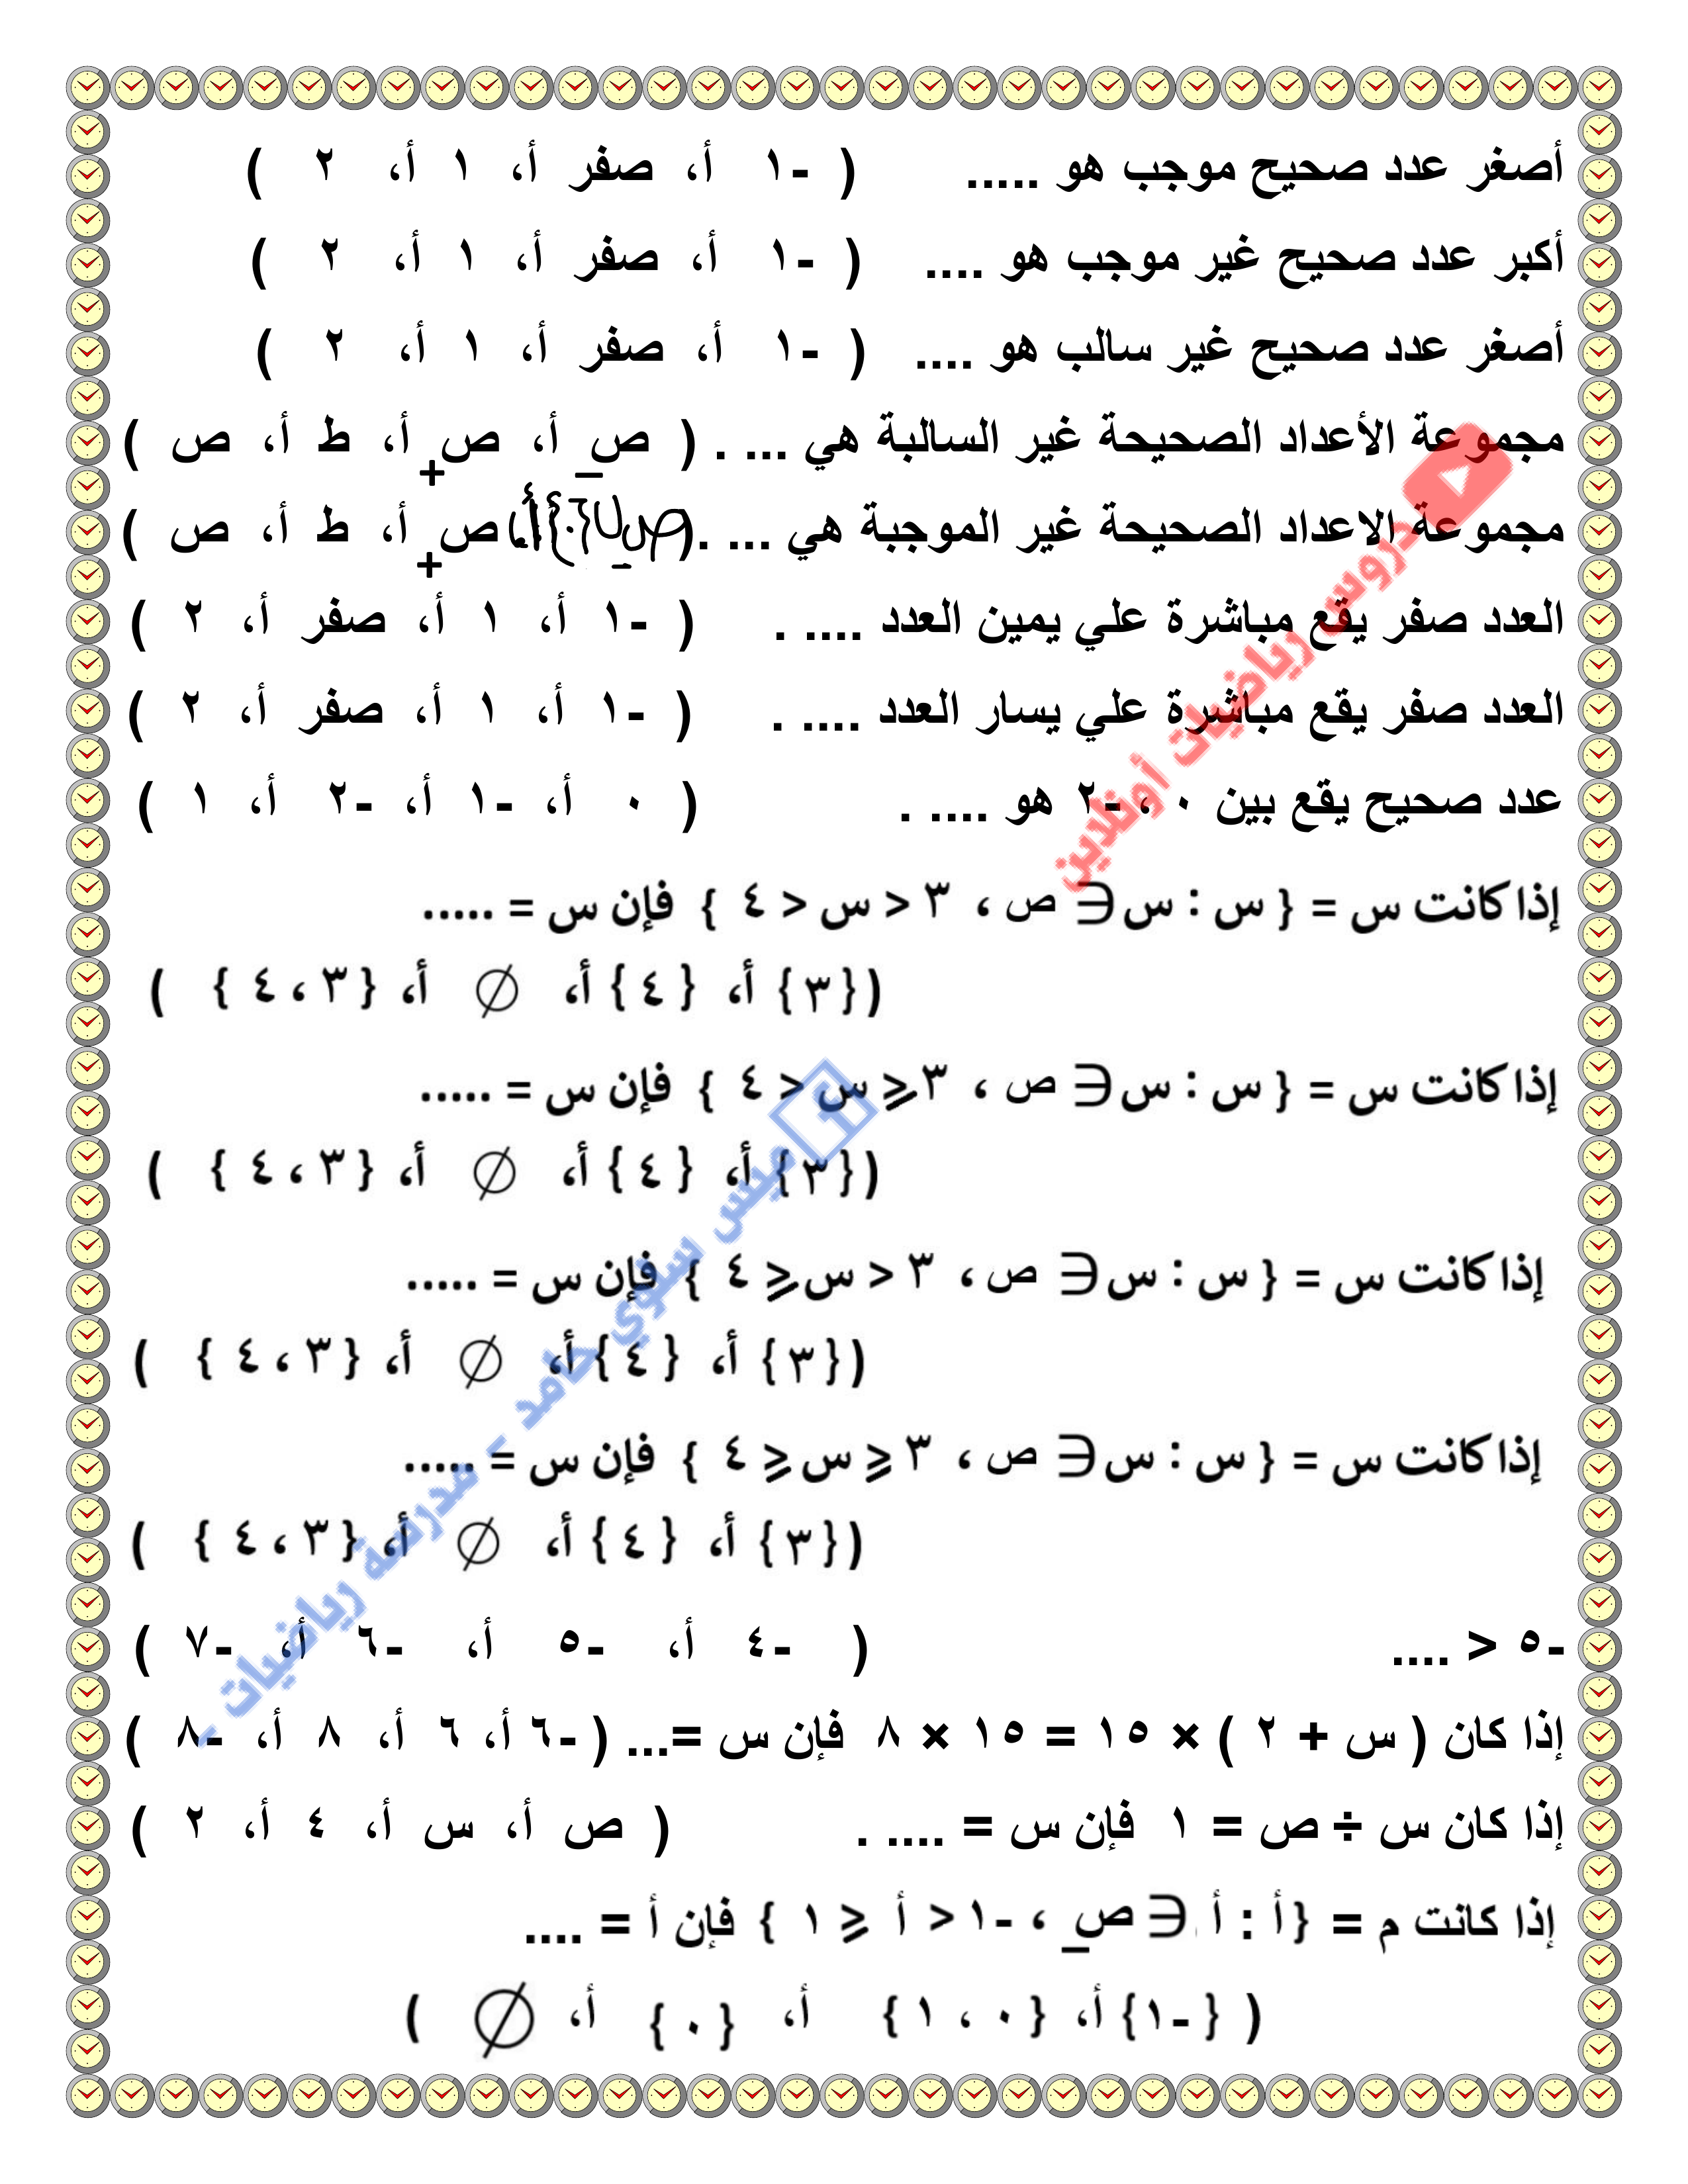 أصغر عدد صحيح موجب هو ..... ( -١ أ، صفر أ، ١ أ، ٢ )
أكبر عدد صحيح غير موجب هو .... ( -١ أ، صفر أ، ١ أ، ٢ )
أصغر عدد صحيح غير سالب هو .... ( -١ أ، صفر أ، ١ أ، ٢ )
مجموعة الأعداد الصحيحة غير السالبة هي ... . ( ص_ أ، ص+ أ، ط أ، ص )
مجموعة الاعداد الصحيحة غير الموجبة هي ... . ( ص_ ∪ {٠} أ، ص+ أ، ط أ، ص )
العدد صفر يقع مباشرة علي يمين العدد .... . ( -١ أ، ١ أ، صفر أ، ٢ )
العدد صفر يقع مباشرة علي يسار العدد .... . ( -١ أ، ١ أ، صفر أ، ٢ )
عدد صحيح يقع بين ٠ ، -٢ هو .... . ( ٠ أ، -١ أ، -٢ أ، ١ )
إذا كانت س = { س : س ∋ ص ، ٣ < س < ٤ } فإن س = .....
( {٣} أ، {٤} أ، ∅ أ، {٣ ، ٤} )
إذا كانت س = { س : س ∋ ص ، ٣ ⩽ س < ٤ } فإن س = .....
( {٣} أ، {٤} أ، ∅ أ، {٣ ، ٤} )
إذا كانت س = { س : س ∋ ص ، ٣ < س ⩽ ٤ } فإن س = .....
( {٣} أ، {٤} أ، ∅ أ، {٣ ، ٤} )
إذا كانت س = { س : س ∋ ص ، ٣ ⩽ س ⩽ ٤ } فإن س = .....
( {٣} أ، {٤} أ، ∅ أ، {٣ ، ٤} )
-٥ < .... ( -٤ أ، -٥ أ، -٦ أ، -٧ )
إذا كان ( س + ٢ ) × ١٥ = ١٥ × ٨ فإن س =... ( -٦ أ، ٦ أ، ٨ أ، -٨ )
إذا كان س ÷ ص = ١ فإن س = .... . ( ص أ، س أ، ٤ أ، ٢ )
إذا كانت م = {أ : أ ∋ ص_ ، -١ < أ ⩽ ١ } فإن أ = ....
( {-١} أ، {٠ ، ١} أ، {٠} أ، ∅ )
دروس رياضيات أونلاين
ميس سلوي حامد - مدرسة رياضيات -